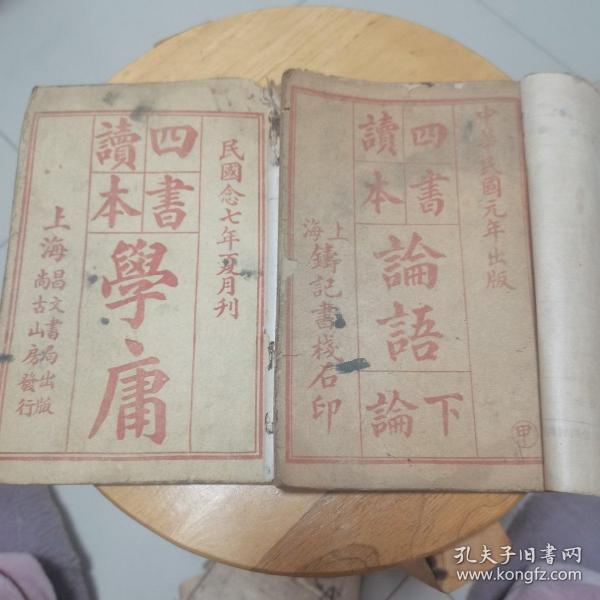 民國念七年夏月刊
四書
讀本
學庸
上海
昌文書局出版
尚古山房發行
中華民國元年出版
四書
讀本
論語
下論
上海
鑄記書棧石印
甲
孔夫子旧书网
www.kongfz.com